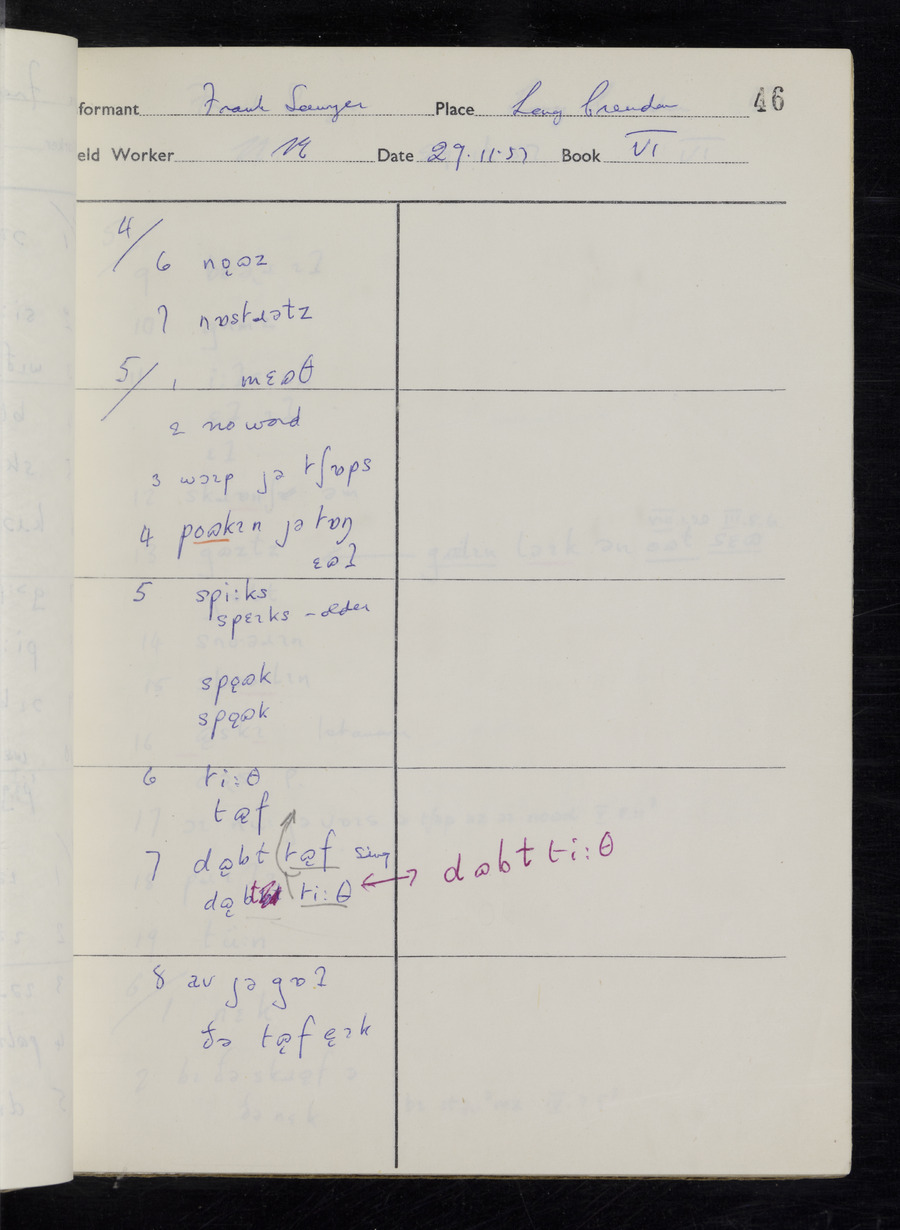 formant Frank Sawyer Place Long Crendon 46
eld Worker Date 29.11.57 Book VI
4/
6 nǫʊz
7 nɒstɹətz
5/ 1 mɛʊθ
2 no word
3 wɔɪp jə tʃɒps
4 poʊkɪn jə tɒŋ
ɛʊʔ
5 spi:ks
spɛɪks - older
spęʊk
spęʊk
6 ti:θ
tæf
7 dæbt tæf sing
ti:θ ↔ dʊbt ti:θ
8 av jə gɒʔ
ðə tæf ęɪk